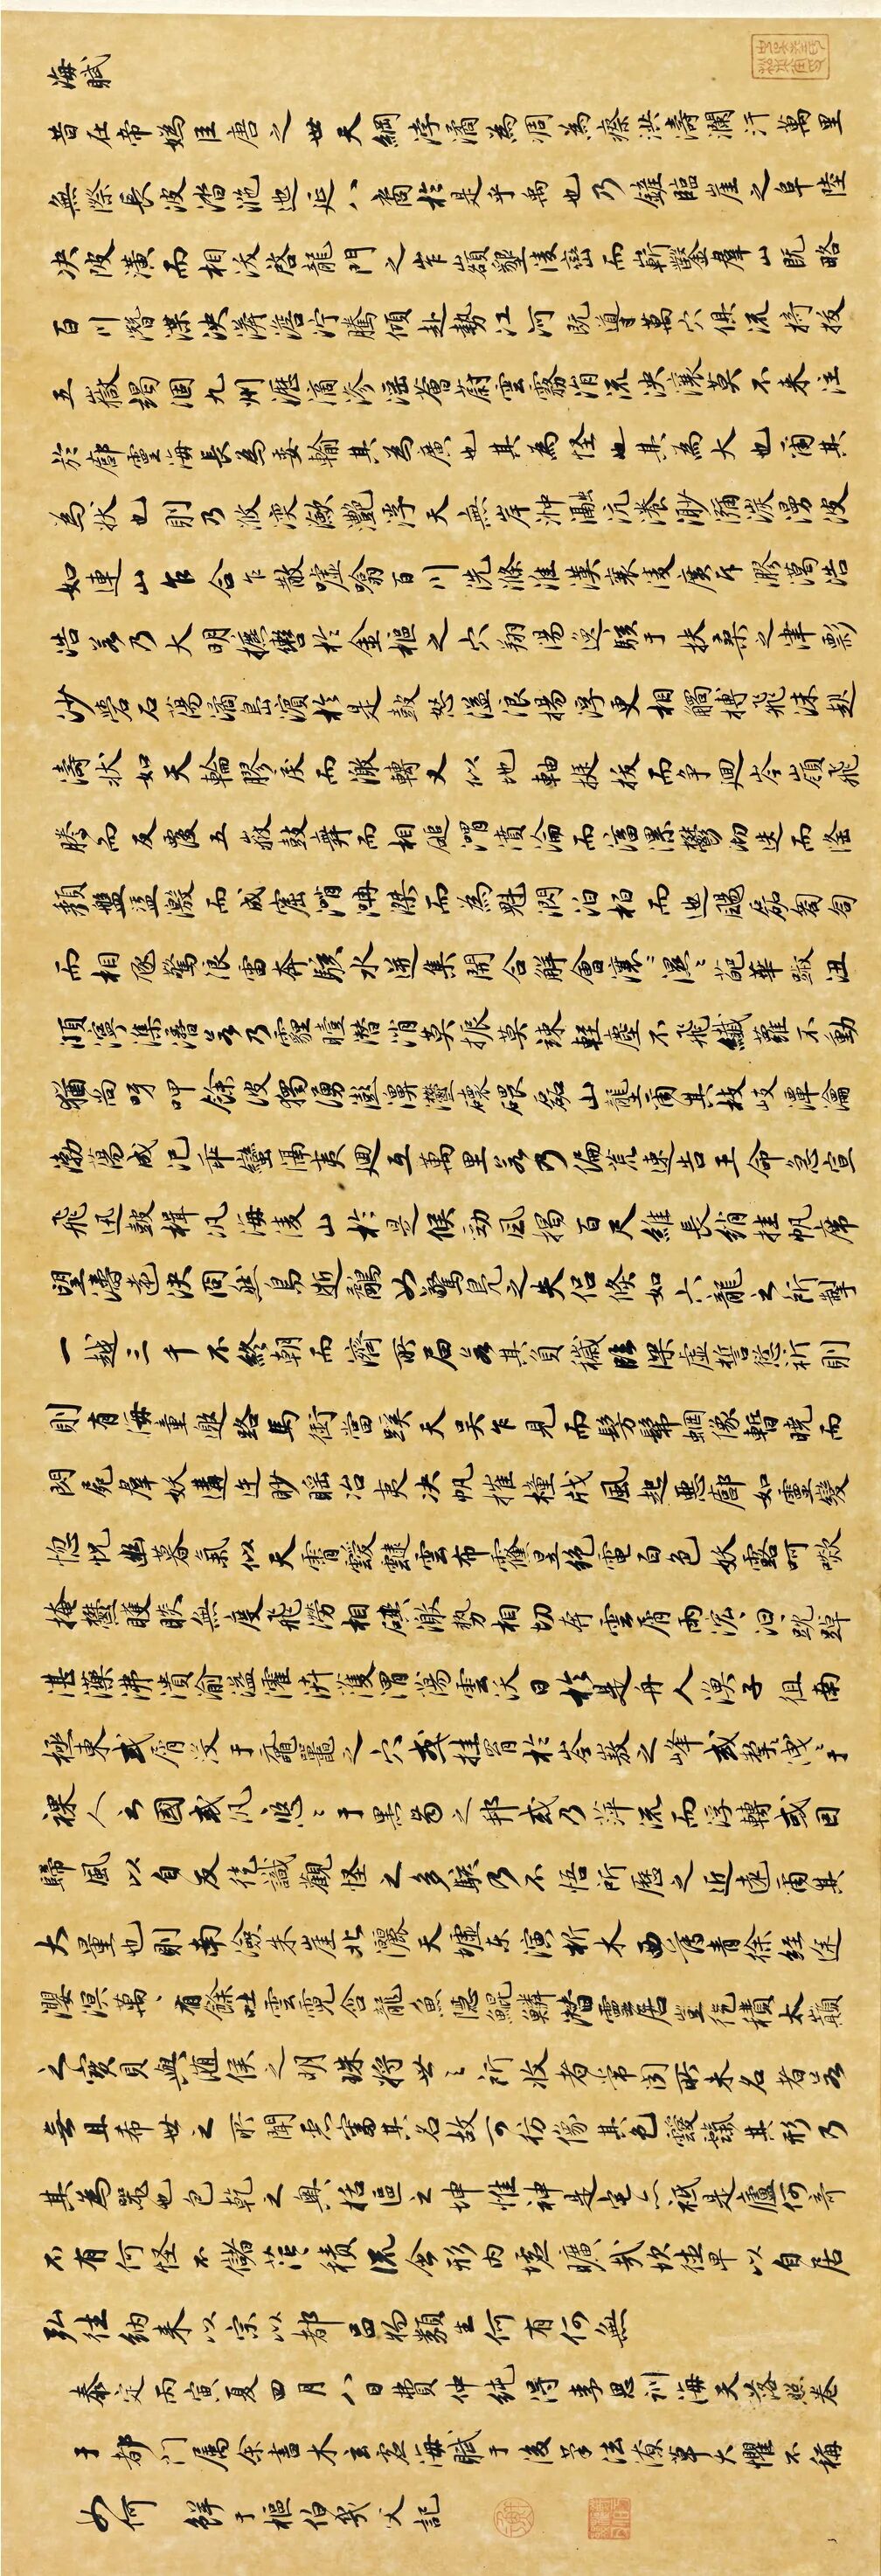 海賦
昔在帝媯臣唐之世天綱浡潏為凋為瘵洪濤瀾汗萬里
無際長波涾㴿迆延八裔於是乎禹也乃鏟臨崖之阜陸
決陂潢而相沷啓龍門之岝嶺墾陵巒而嶄鑿羣山既略
百川潛渫泱漭澹濘騰傾赴勢江河既導萬穴俱流掎拔
五嶽竭涸九州瀝滴滲淫薈蔚雲霧涓流泱瀼莫不來注
於廓靈海長為委輸其為廣也其為怪也其為大也爾其
為狀也則乃浟湙瀲灩浮天無岸沖瀜沆瀁渺瀰湠漫波
如連山乍合乍散噓噏百川洗滌淮漢襄陵廣斥㵧㵍浩
浩若乃大明摭轡於金樞之穴翔陽逸駭于扶桑之津影
沙礐石蕩潏島濱於是鼓怒溢浪揚浮更相觸搏飛沫起
濤狀如天輪膠戾而激轉又似地軸挺拔而爭迴岑嶺飛
騰而反覆五嶽鼓舞而相磓㵢濆淪而滀漯鬱沏迭而隆
頹盤盓激而成窟㴽㴸滐而為魁㵎泊柏而迆颺磊匒匌
而相豗驚浪雷奔駭水迸集開合解會瀼瀼濕濕葩華踧沑
澒濘潗㴔若乃霾曀潛消莫振莫竦輕塵不飛纖蘿不動
猶尚呀呷餘波獨湧澎濞灪磙碨磊山壟爾其枝岐潭瀹
渤蕩成汜乖蠻隔夷迴互萬里若乃偏荒速告王命急宣
飛迅鼓楫汎海凌山於是候勁風揭百尺維長綃挂帆席
望濤遠決冏然鳥逝鷸如驚鳧之失侶倏如六龍之所掣
一越三千不終朝而濟所屆若其負穢臨深虛誓愆祈則
則有海童邀路馬銜當蹊天吳乍見而髣髴蝄像暫曉而
閃屍羣妖遘迕眇䁘冶夷決帆摧橦戕風起惡廓如靈變
惚怳幽暮氣似天霄靉靅雲布䨥昱絕電百色妖露呵㰤
掩鬱矆睒無度飛澇相磢激勢相沏崩雲屑雨浤浤汨汨䠙踔
湛㶖沸潰渝溢瀖泋濩渭蕩雲沃日於是舟人漁子徂南
極東或屑沒于黿鼉之穴或挂罥於岑嶅之峰或掣掣洩洩于
裸人之國或汎汎悠悠于黑齒之邦或乃萍流而浮轉或因
歸風以自反徒識觀怪之多駭乃不悟所歷之近遠爾其
大量也則南澰朱崖北灑天墟東演析木西薄青徐經途
瀴溟萬萬有餘吐雲霓含龍魚隱鯤鱗潛靈居豈徒積太顛
之寶貝與隨侯之明珠將世之所收者常聞所未名者若
無且希世之所聞惡審其名故可仿像其色靉霼其形乃
其為器也包乾之奧括區之坤惟神是宅亦祗是廬何奇
不有何怪不儲茫茫積流含形內虛曠哉坎德卑以自居
弘往納來以宗以都品物類生何有何無
泰定丙寅夏四月八日費仲純得李思訓海天落照卷
于都門屬余書木玄虛海賦于後筆法潦草大懼不稱
如何 鮮于樞伯幾父記